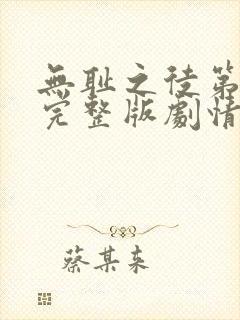 無耻之徒第
完整版劇情
蔡某来